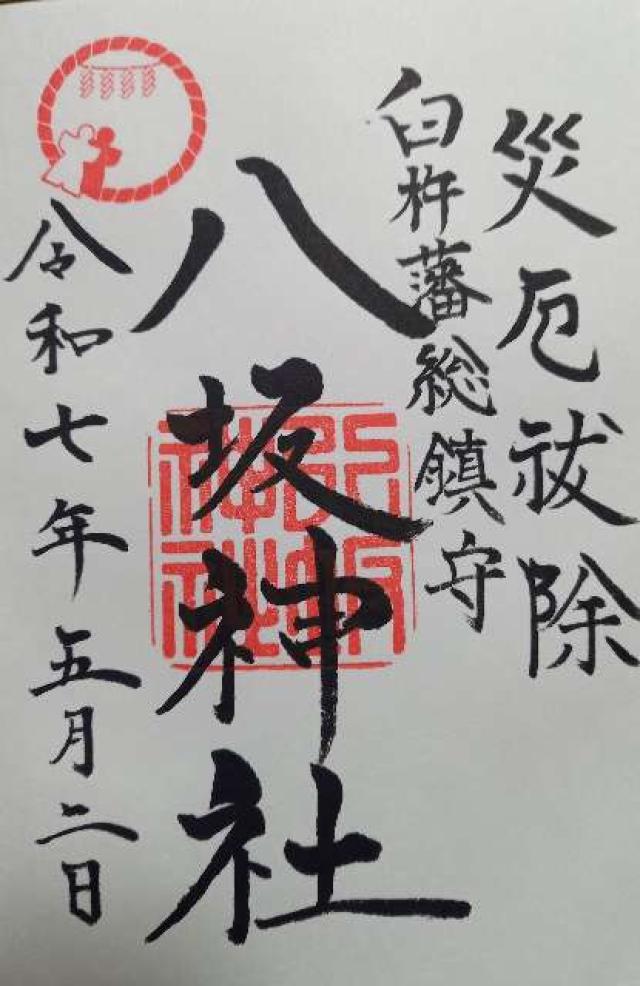 災厄祓除
臼杵藩総鎮守
八坂神社
八坂神社
令和七年五月二日